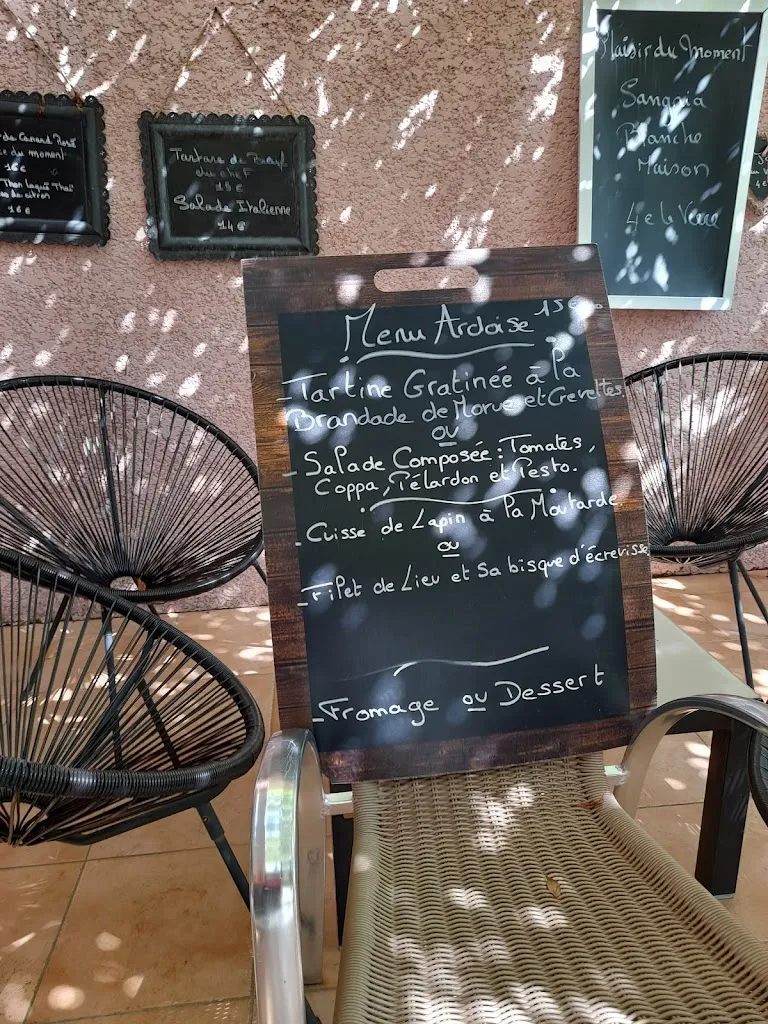 de Canard Rôti
du moment
16€
Thon laqué Thaï
de citron
16€
Tartare de Bœuf
du cheF
18€
Salade Italienne
14€
Plaisir du Moment
Sangria
Blanche
Maison
4e le Verre
4e
Menu Ardoise
_Tartine Gratinée à la
Brandade de Morue et Crevettes
ou
_Salade Composée: Tomates,
Coppa, Pélardon et Pesto.
_Cuisse de Lapin à la Moutarde
ou
_Filet de Lieu et Sa bisque d'écrevisse
_Fromage ou Dessert